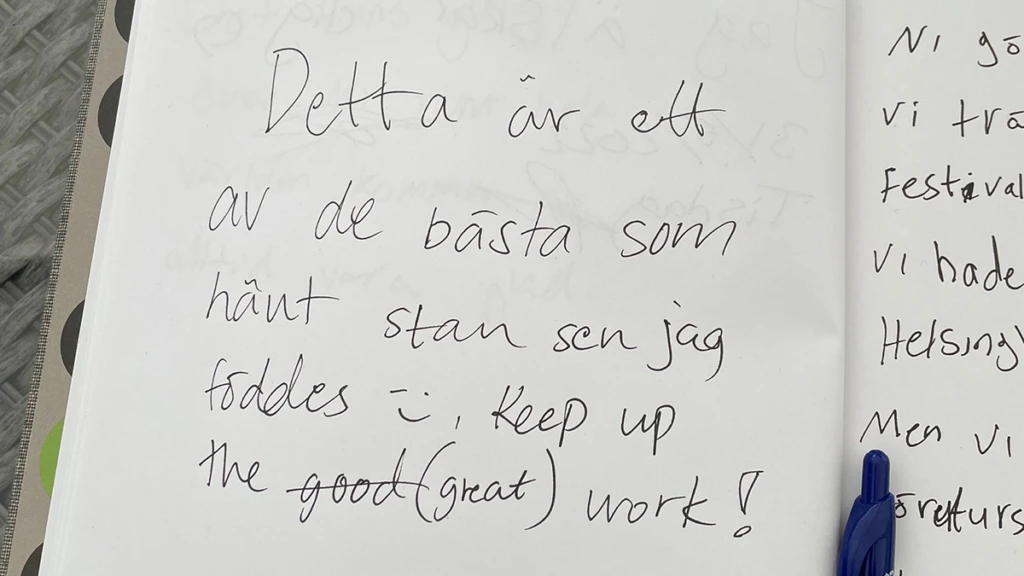 Detta är ett
av de bästa som
hänt stan sen jag
föddes =), Keep up
the ~~good~~ (great) work!
Ni
Vi
Festival
Vi hade
Men vi